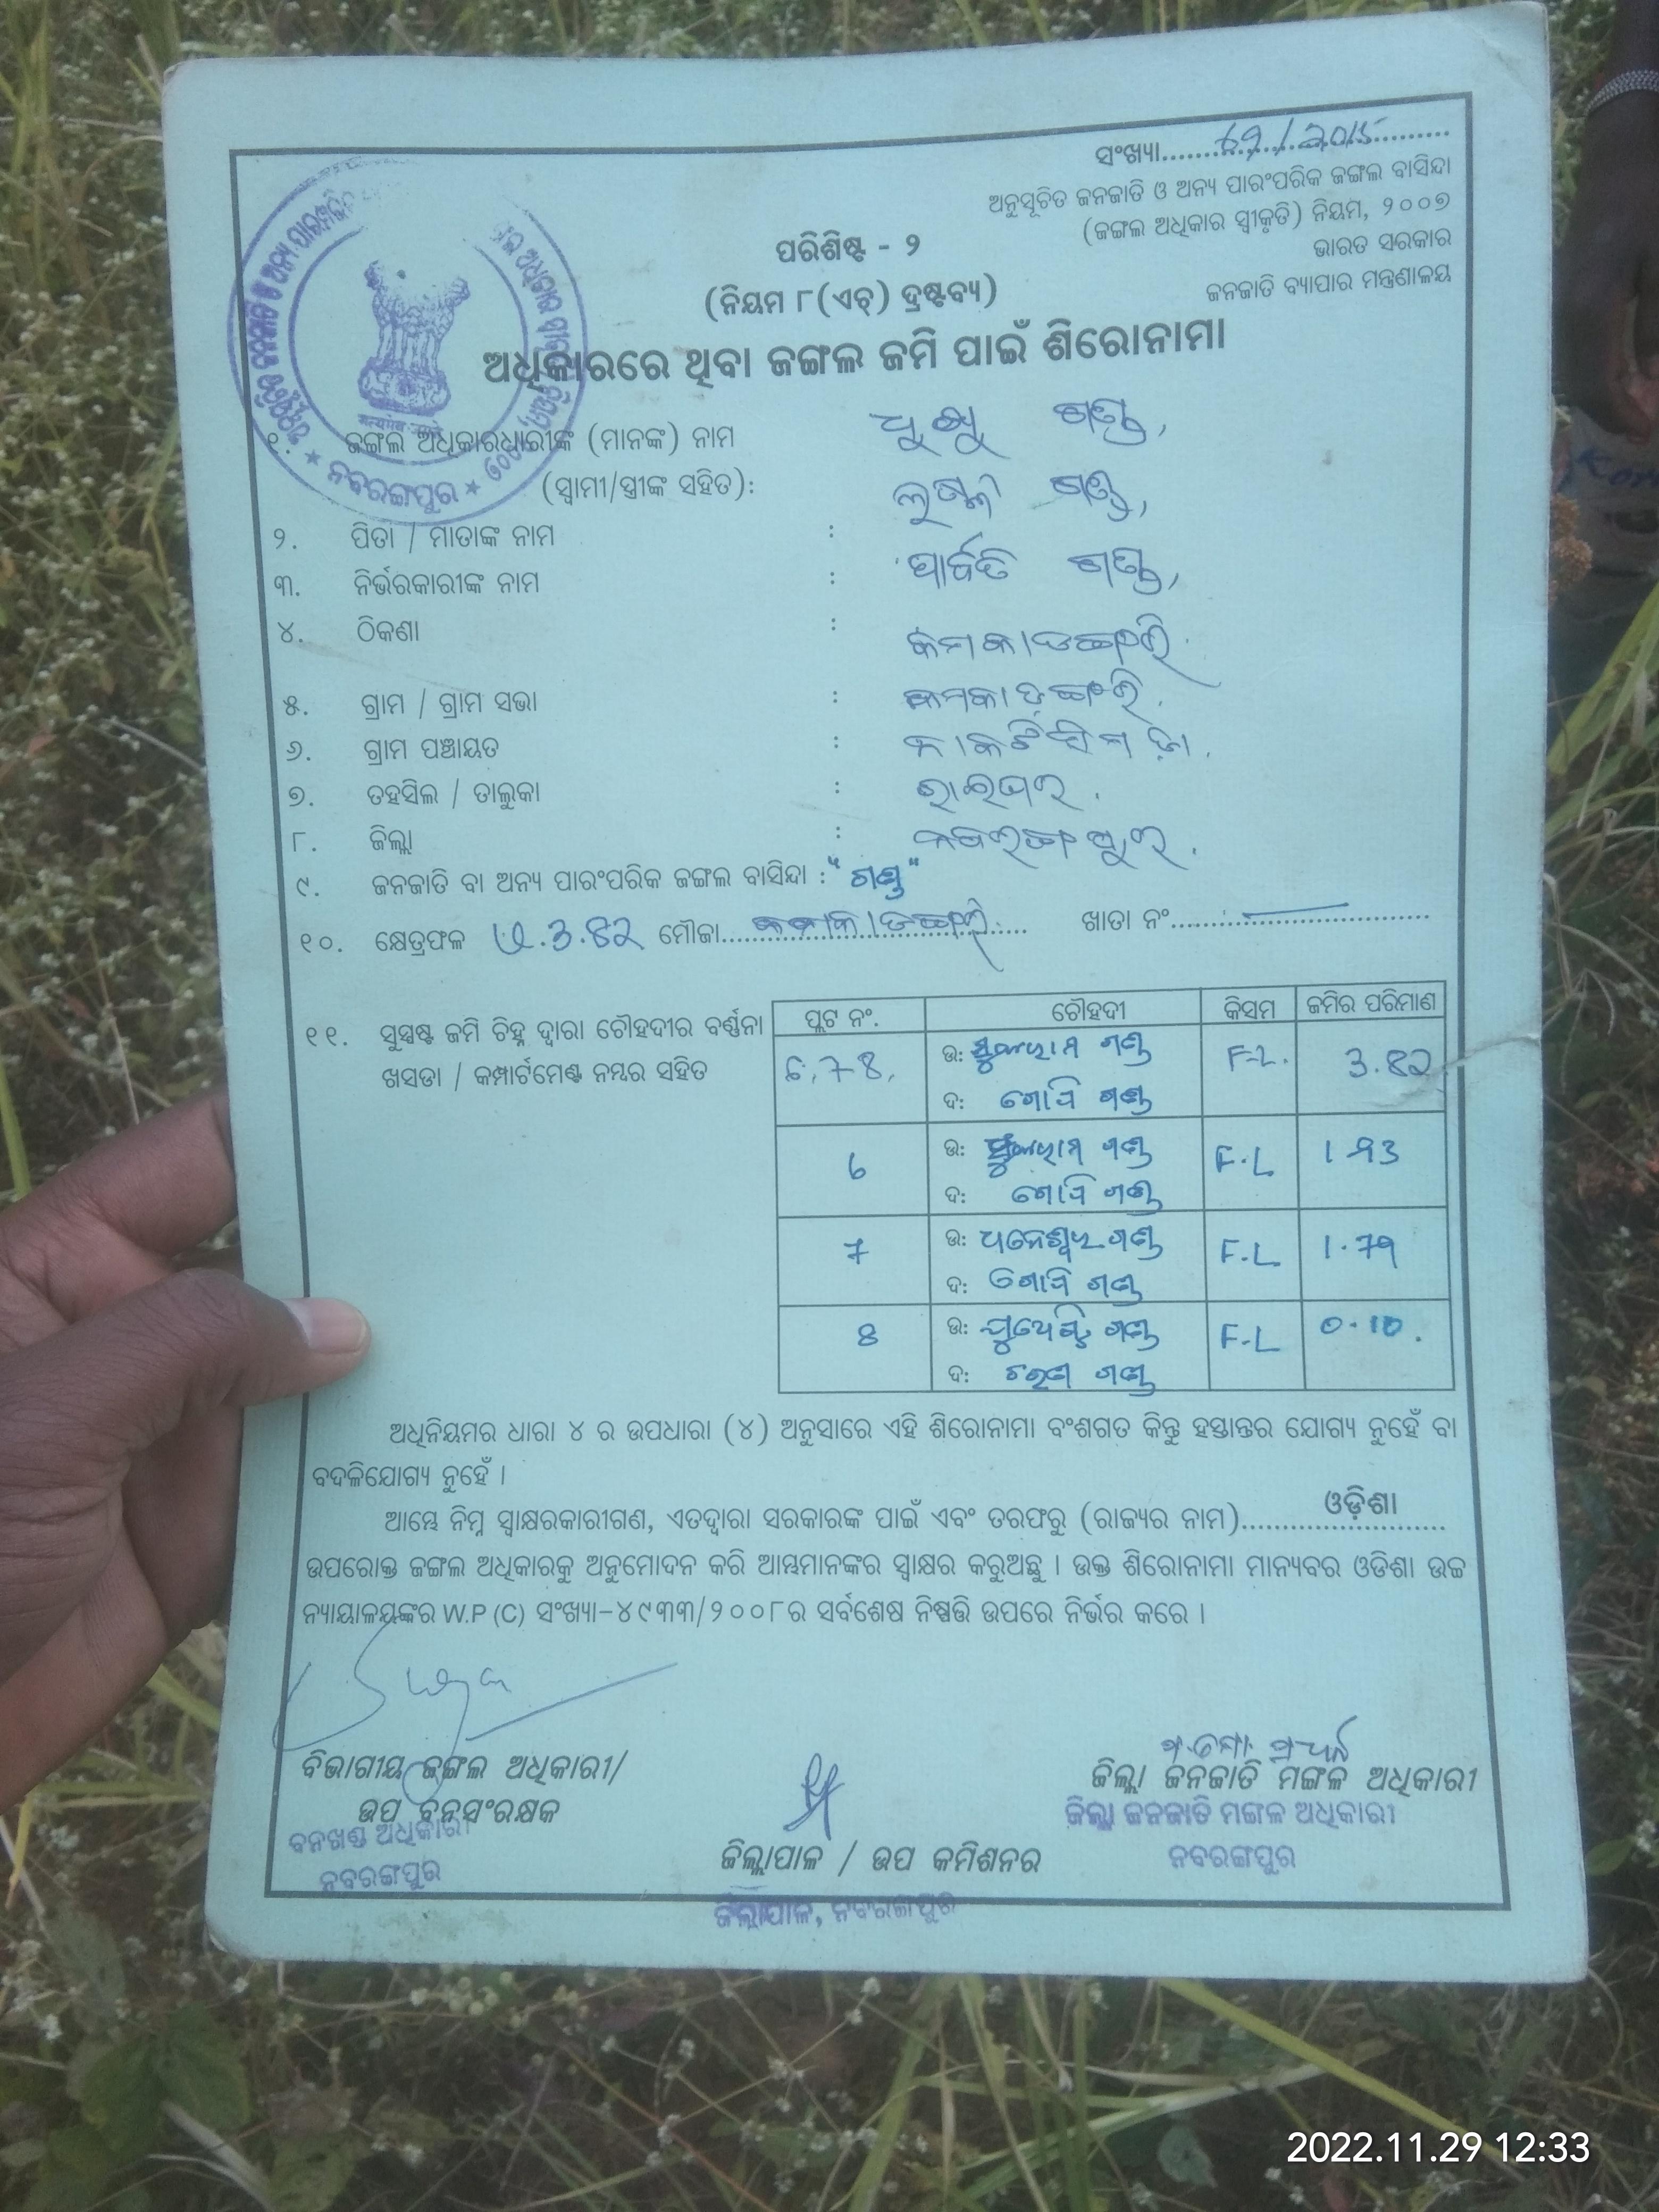 ସଂଖ୍ୟା
ଅନୁସୂଚିତ ଜନଜାତି ଓ ଅନ୍ୟ ପାରଂପରିକ ଜଙ୍ଗଲ ବାସିନ୍ଦା
(ଜଙ୍ଗଲ ଅଧିକାର ସ୍ୱୀକୃତି) ନିୟମ, ୨୦୦୭
ଭାରତ ସରକାର
ଜନଜାତି ବ୍ୟାପାର ମନ୍ତ୍ରଣାଳୟ
ପରିଶିଷ୍ଟ - ୨
(ନିୟମ ୮(ଏଚ୍) ଦ୍ରଷ୍ଟବ୍ୟ)
ଅଧିକାରରେ ଥିବା ଜଙ୍ଗଲ ଜମି ପାଇଁ ଶିରୋନାମା
ନବରଙ୍ଗପୁର
୧. ଜଙ୍ଗଲ ଅଧିକାରଧାରୀଙ୍କ (ମାନଙ୍କ) ନାମ
(ସ୍ୱାମୀ/ସ୍ତ୍ରୀଙ୍କ ସହିତ):
୨. ପିତା / ମାତାଙ୍କ ନାମ :
୩. ନିର୍ଭରକାରୀଙ୍କ ନାମ : ପାର୍ବତି ଗଣ୍ଡ,
୪. ଠିକଣା :
୫. ଗ୍ରାମ / ଗ୍ରାମ ସଭା :
୬. ଗ୍ରାମ ପଞ୍ଚାୟତ :
୭. ତହସିଲ / ତାଲୁକା : ରାଇଘର.
୮. ଜିଲ୍ଲା : ନବରଙ୍ଗପୁର.
୯. ଜନଜାତି ବା ଅନ୍ୟ ପାରଂପରିକ ଜଙ୍ଗଲ ବାସିନ୍ଦା : "ଗଣ୍ଡ"
୧୦. କ୍ଷେତ୍ରଫଳ ମୌଜା ଖାତା ନଂ
୧୧. ସୁସ୍ପଷ୍ଟ ଜମି ଚିହ୍ନ ଦ୍ୱାରା ଚୌହଦୀର ବର୍ଣ୍ଣନା
ଖସଡା / କମ୍ପାର୍ଟମେଣ୍ଟ ନମ୍ବର ସହିତ
ପ୍ଲଟ ନଂ. ଚୌହଦୀ କିସମ ଜମିର ପରିମାଣ
6,7-8, ଉ: ଗଣ୍ଡ F-L. 3.82
ଦ: ଗୋବି ଗଣ୍ଡ
6 ଉ: ଗଣ୍ଡ F.L
ଦ: ଗୋବି ଗଣ୍ଡ
7 ଉ: ଧନେଶ୍ୱର ଗଣ୍ଡ F.L 1.79
ଦ: ଗୋବି ଗଣ୍ଡ
8 ଉ: ଗଣ୍ଡ F-L 0.10.
ଦ: ଚରଣ ଗଣ୍ଡ
ଅଧିନିୟମର ଧାରା ୪ ର ଉପଧାରା (୪) ଅନୁସାରେ ଏହି ଶିରୋନାମା ବଂଶଗତ କିନ୍ତୁ ହସ୍ତାନ୍ତର ଯୋଗ୍ୟ ନୁହେଁ ବା
ବଦଳିଯୋଗ୍ୟ ନୁହେଁ ।
ଆମ୍ଭେ ନିମ୍ନ ସ୍ୱାକ୍ଷରକାରୀଗଣ, ଏତଦ୍ୱାରା ସରକାରଙ୍କ ପାଇଁ ଏବଂ ତରଫରୁ (ରାଜ୍ୟର ନାମ) ଓଡ଼ିଶା
ଉପରୋକ୍ତ ଜଙ୍ଗଲ ଅଧିକାରକୁ ଅନୁମୋଦନ କରି ଆମ୍ଭମାନଙ୍କର ସ୍ୱାକ୍ଷର କରୁଅଛୁ । ଉକ୍ତ ଶିରୋନାମା ମାନ୍ୟବର ଓଡିଶା ଉଚ୍ଚ
ନ୍ୟାୟାଳୟଙ୍କର W.P (C) ସଂଖ୍ୟା-୪୯୩୩/୨୦୦୮ର ସର୍ବଶେଷ ନିଷ୍ପତ୍ତି ଉପରେ ନିର୍ଭର କରେ ।
ବିଭାଗୀୟ ଜଙ୍ଗଲ ଅଧିକାରୀ/
ଉପ ବନସଂରକ୍ଷକ
ବନଖଣ୍ଡ ଅଧିକାରୀ
ନବରଙ୍ଗପୁର
ଜିଲ୍ଲାପାଳ / ଉପ କମିଶନର
ଜିଲ୍ଲାପାଳ, ନବରଙ୍ଗପୁର
ଜିଲ୍ଲା ଜନଜାତି ମଙ୍ଗଳ ଅଧିକାରୀ
ଜିଲ୍ଲା ଜନଜାତି ମଙ୍ଗଳ ଅଧିକାରୀ
ନବରଙ୍ଗପୁର
2022.11.29 12:33